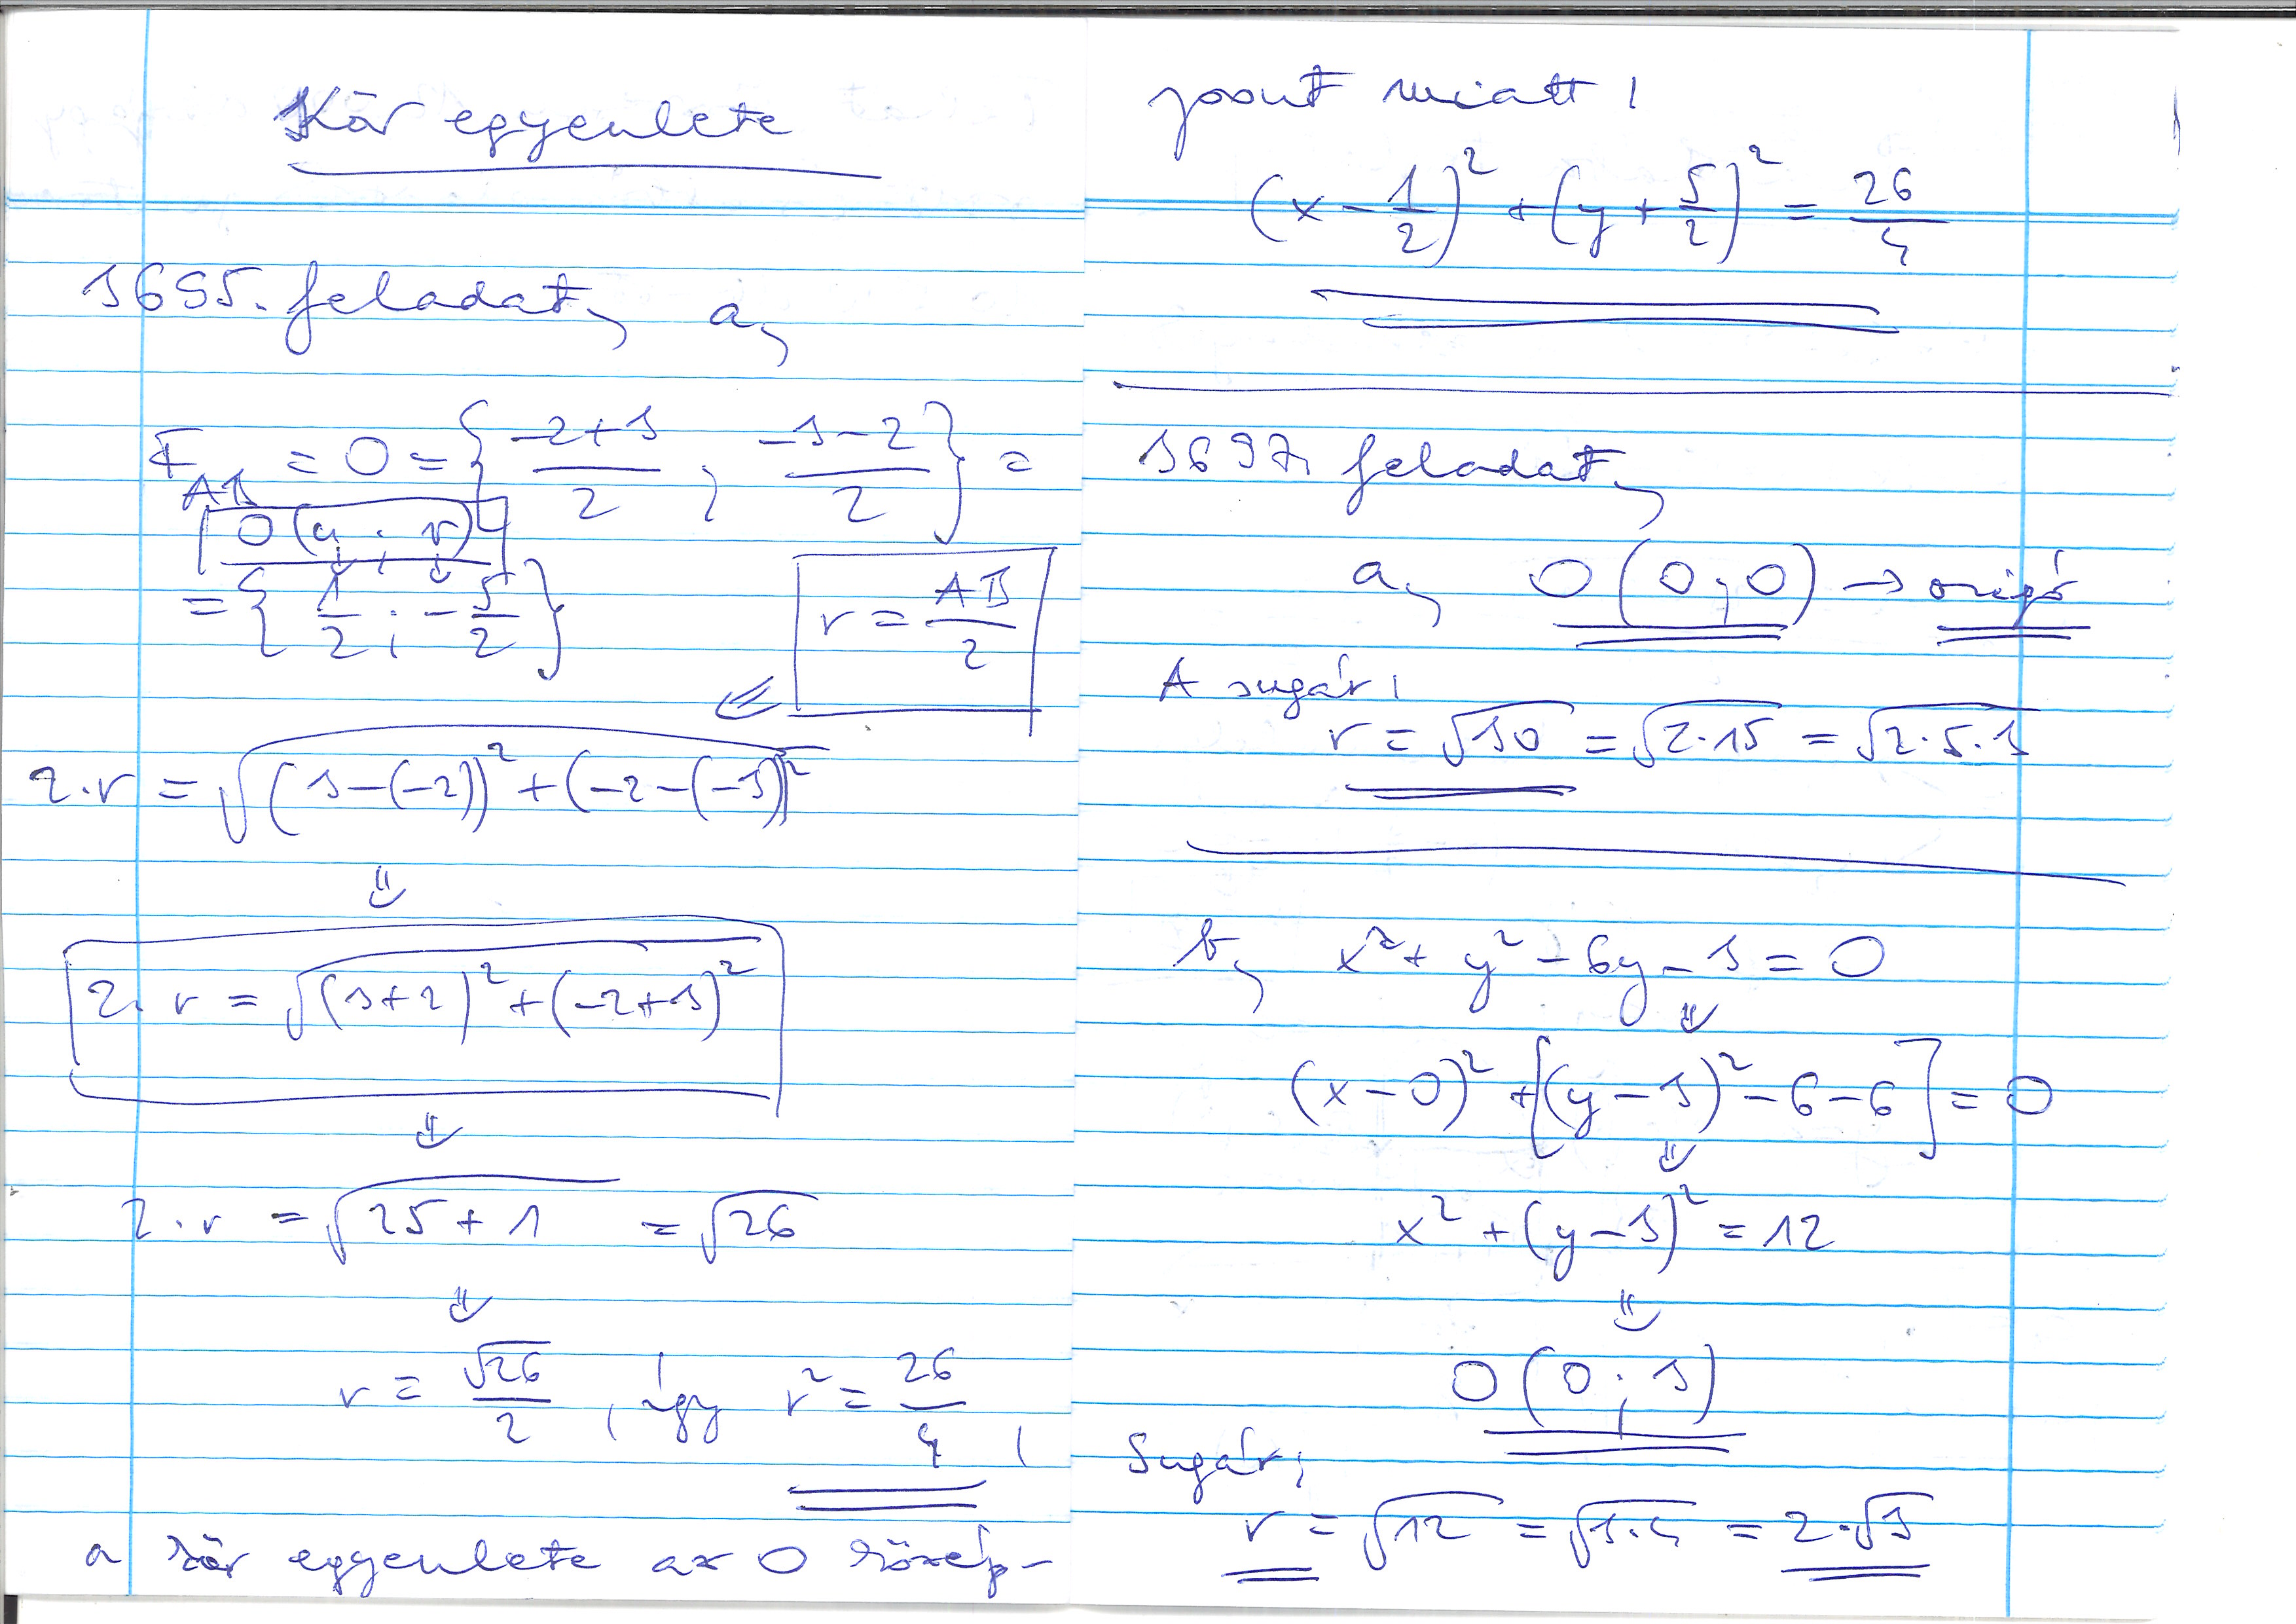 Kör egyenlete
3695. feladat, a,
F_AB = O = { (-2+3)/2 ; (-3-2)/2 } =
O(u ; v)
= { 1/2 ; -5/2 }
r = AB/2
2·r = √((3-(-2))² + (-2-(-3))²
⇓
2·r = √((3+2)² + (-2+3)²
⇓
2·r = √(25+1) = √26
⇓
r = √26/2 , így r² = 26/4 ,
a kör egyenlete az O közép-
pont miatt:
(x - 1/2)² + (y + 5/2)² = 26/4
3697. feladat,
a, O(0;0) → origó
A sugár:
r = √30 = √(2·15) = √(2·5·3)
b, x² + y² - 6y - 3 = 0
⇓
(x-0)² + [(y-3)² - 6 - 6] = 0
⇓
x² + (y-3)² = 12
⇓
O(0;3)
Sugár:
r = √12 = √(3·4) = 2·√3